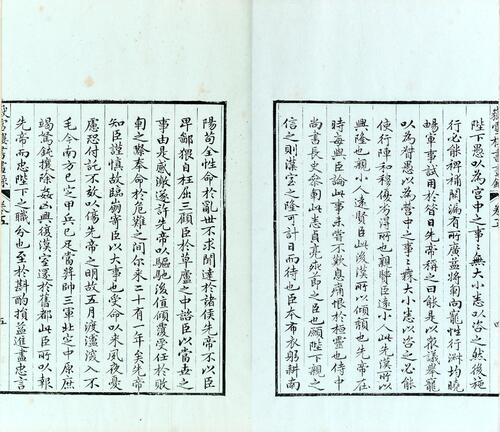 陛下愚以為宮中之事無大小悉以咨之然後施
行必能裨補闕漏有所廣益將軍向寵性行淑均曉
暢軍事試用於昔日先帝稱之曰能是以眾議舉寵
以為督愚以為營中之事〻無大小悉以咨之必能
使行陣和穆優劣得所也親賢臣遠小人此先漢所以
興隆也親小人遠賢臣此後漢所以傾頹也先帝在
時每與臣論此事未嘗不歎息痛恨於桓靈也侍中
尚書長史參軍此悉貞亮死節之臣也願陛下親之
信之則漢室之隆可計日而待也臣本布衣躬耕南
陽苟全性命於亂世不求聞達於諸侯先帝不以臣
卑鄙猥自枉屈三顧臣於草廬之中諮臣以當世之
事由是感激遂許先帝以驅馳後值傾覆受任於敗
軍之際奉命於危難之間尔來二十有一年矣先帝
知臣謹慎故臨崩寄臣以大事也受命以來夙夜憂
慮恐付託不效以傷先帝之明故五月渡瀘深入不
毛今南方已定甲兵已足當獎帥三軍北定中原庶
竭駑鈍攘除姦凶興復漢室還於舊都此臣所以報
先帝而忠陛下之職分也至於斟酌損益進盡忠言
嶽雪樓書畫錄 卷五 五